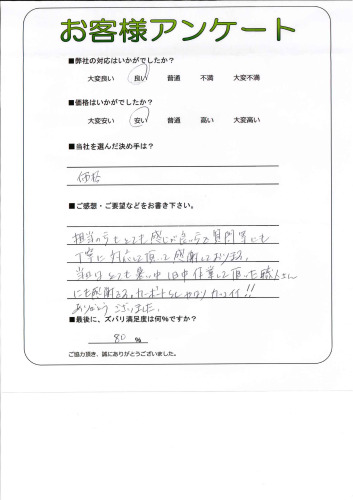 お客様アンケート
■弊社の対応はいかがでしたか?
大変良い 良い 普通 不満 大変不満
■価格はいかがでしたか?
大変安い 安い 普通 高い 大変高い
■当社を選んだ決め手は?
価格
■ご感想・ご要望などをお書き下さい。
担当の方もとても感じが良い方で質問等にも
丁寧に対応して頂いて感謝しております。
当日はとても暑い中1日中作業して頂いた職人さん
にも感謝です。カーポート
ありがとうございました。
■最後に、ズバリ満足度は何%ですか?
80 %
ご協力頂き、誠にありがとうございました。